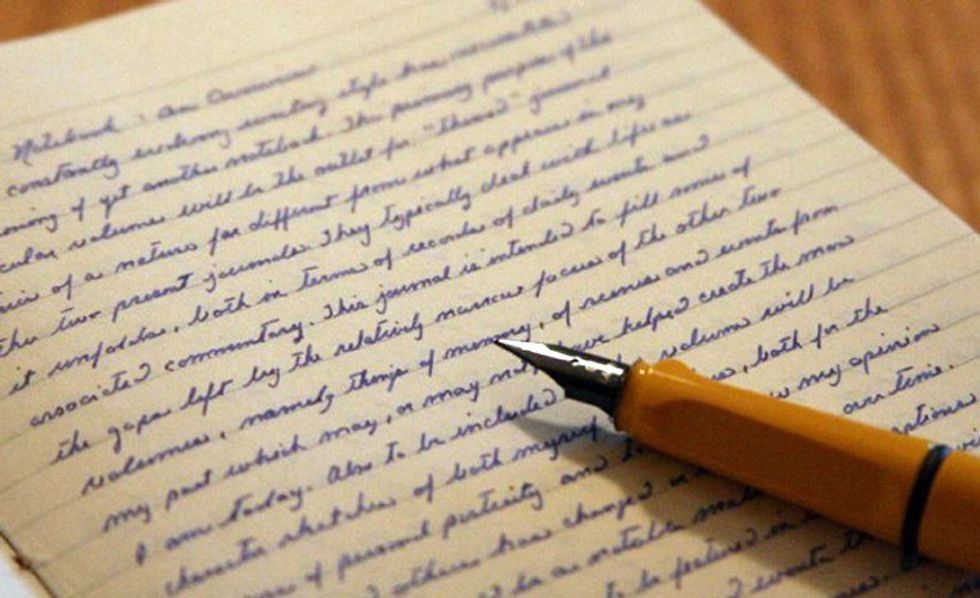 Notebook: An Overview
constantly evolving writing style has
of yet another notebook. The primary purpose of the
cular volume will be the outlet for "themed" journal
of a nature far different from what appears in my
other two present journals. They typically deal with life as
it unfolds, both in terms of records of daily events and
associated commentary. This journal is intended to fill some of
the gaps left by the relatively narrow focus of the other two
volumes, namely things of memory, of scenes and events from
my past which may, or may not have helped create the man
I am today. Also to be included volume will be
character sketches of both myself both for the
of personal posterity and my opinion
others have changed over time.
be a notable
to be featured in
events